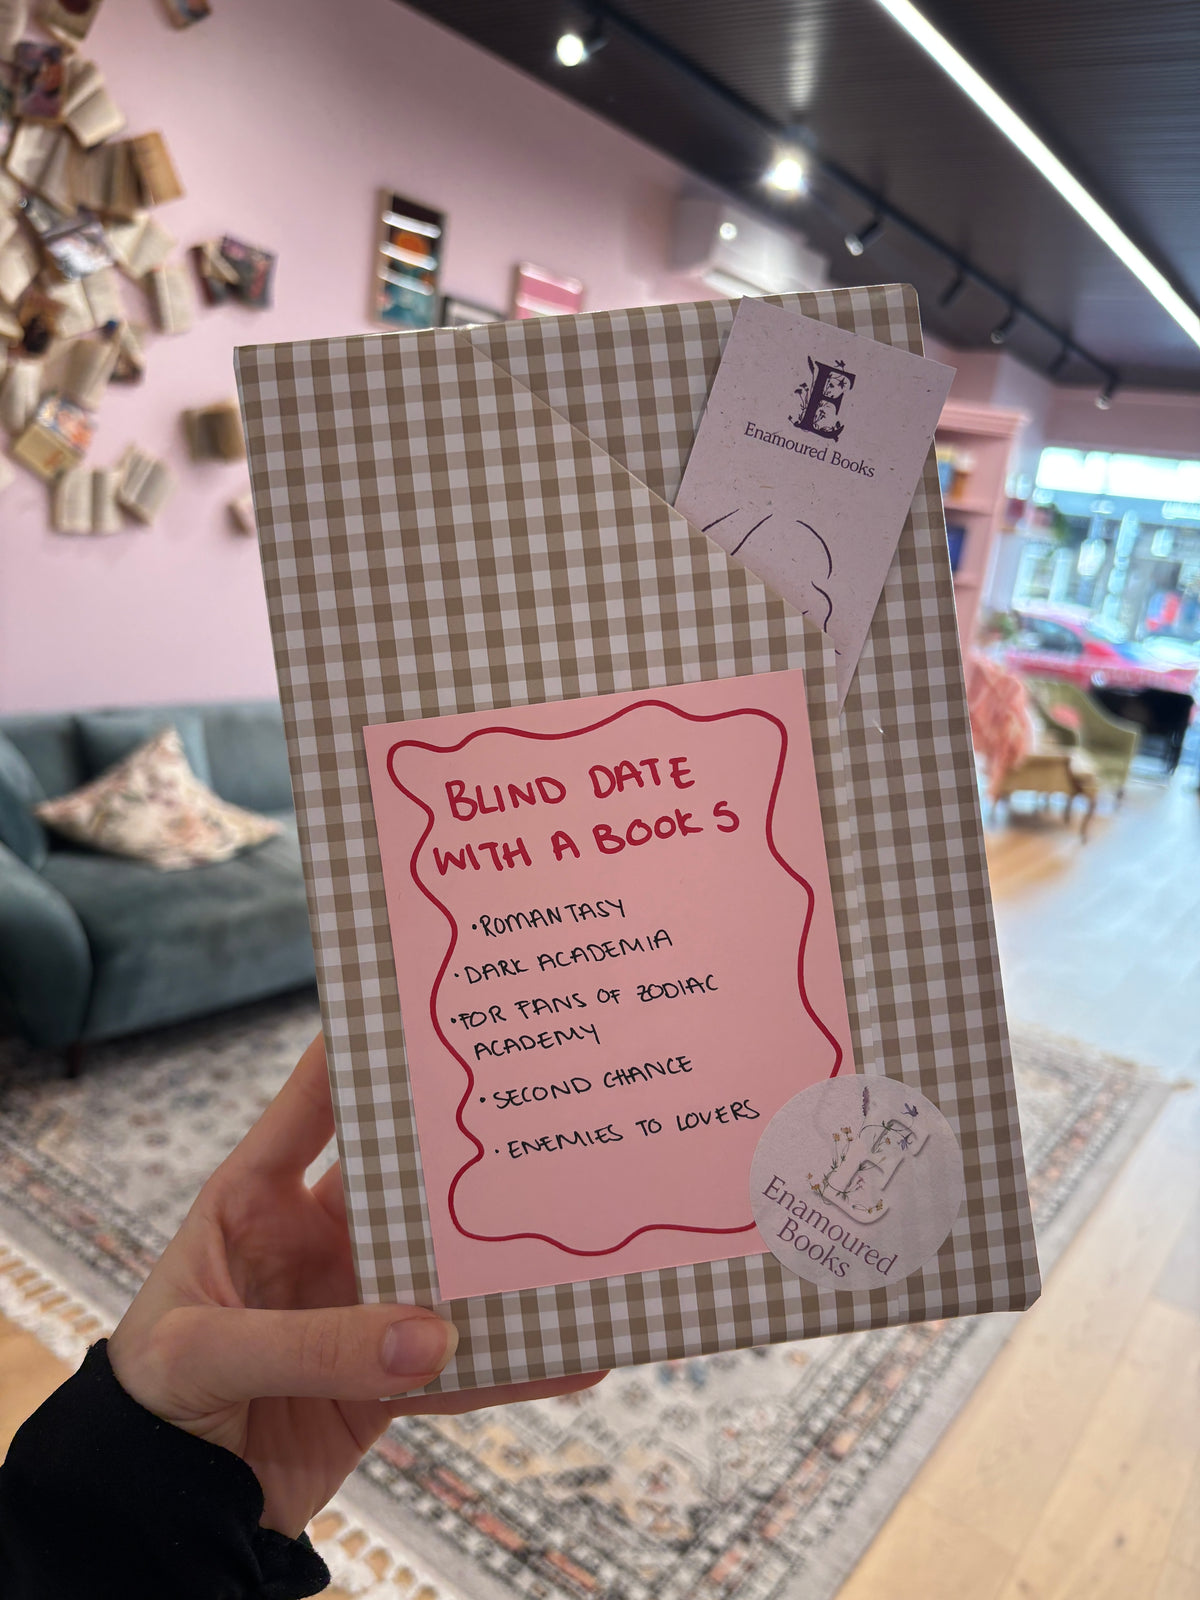 Enamoured Books
BLIND DATE
WITH A BOOKS
•ROMANTASY
•DARK ACADEMIA
•FOR FANS OF ZODIAC
ACADEMY
•SECOND CHANCE
•ENEMIES TO LOVERS
E
Enamoured
Books